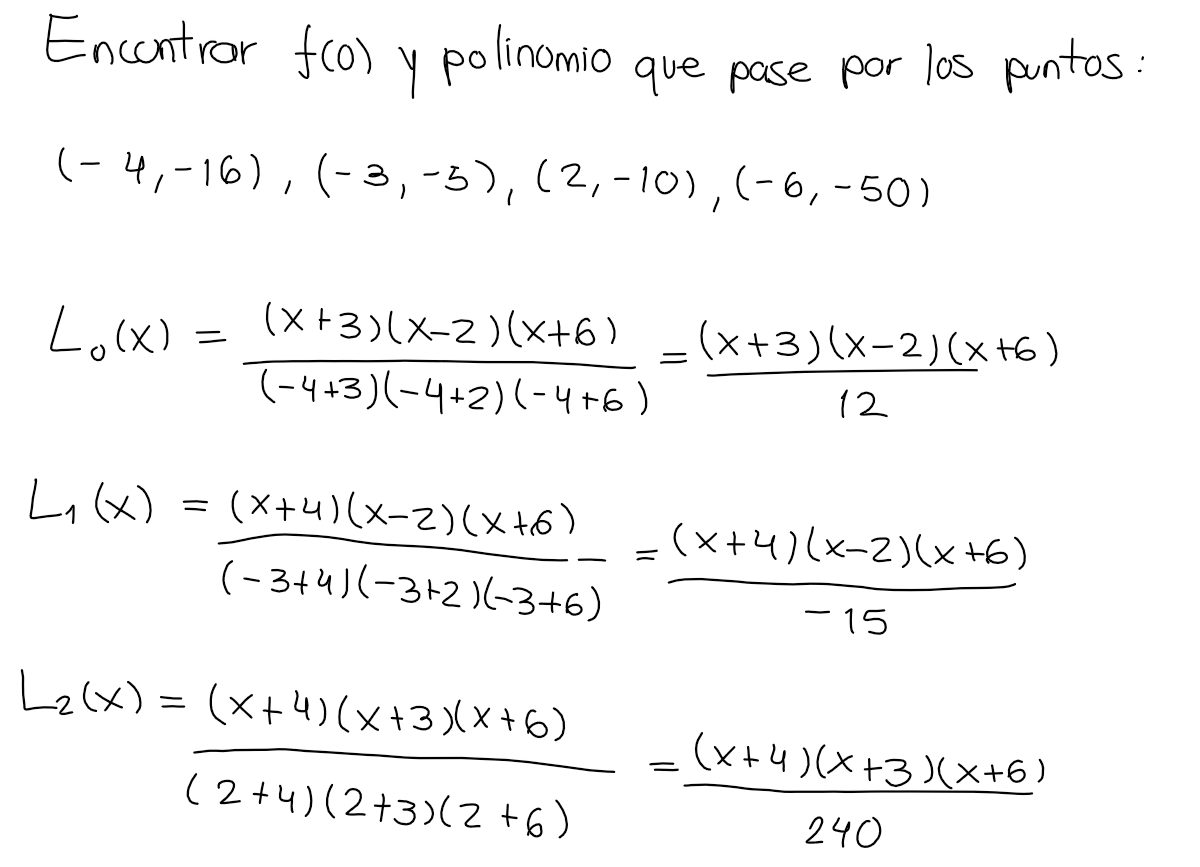 Encontrar f(0) y polinomio que pase por los puntos:
(-4,-16), (-3,-5), (2,-10), (-6,-50)
L₀(x) = (x+3)(x-2)(x+6) / (-4+3)(-4+2)(-4+6) = (x+3)(x-2)(x+6) / 12
L₁(x) = (x+4)(x-2)(x+6) / (-3+4)(-3+2)(-3+6) = (x+4)(x-2)(x+6) / -15
L₂(x) = (x+4)(x+3)(x+6) / (2+4)(2+3)(2+6) = (x+4)(x+3)(x+6) / 240